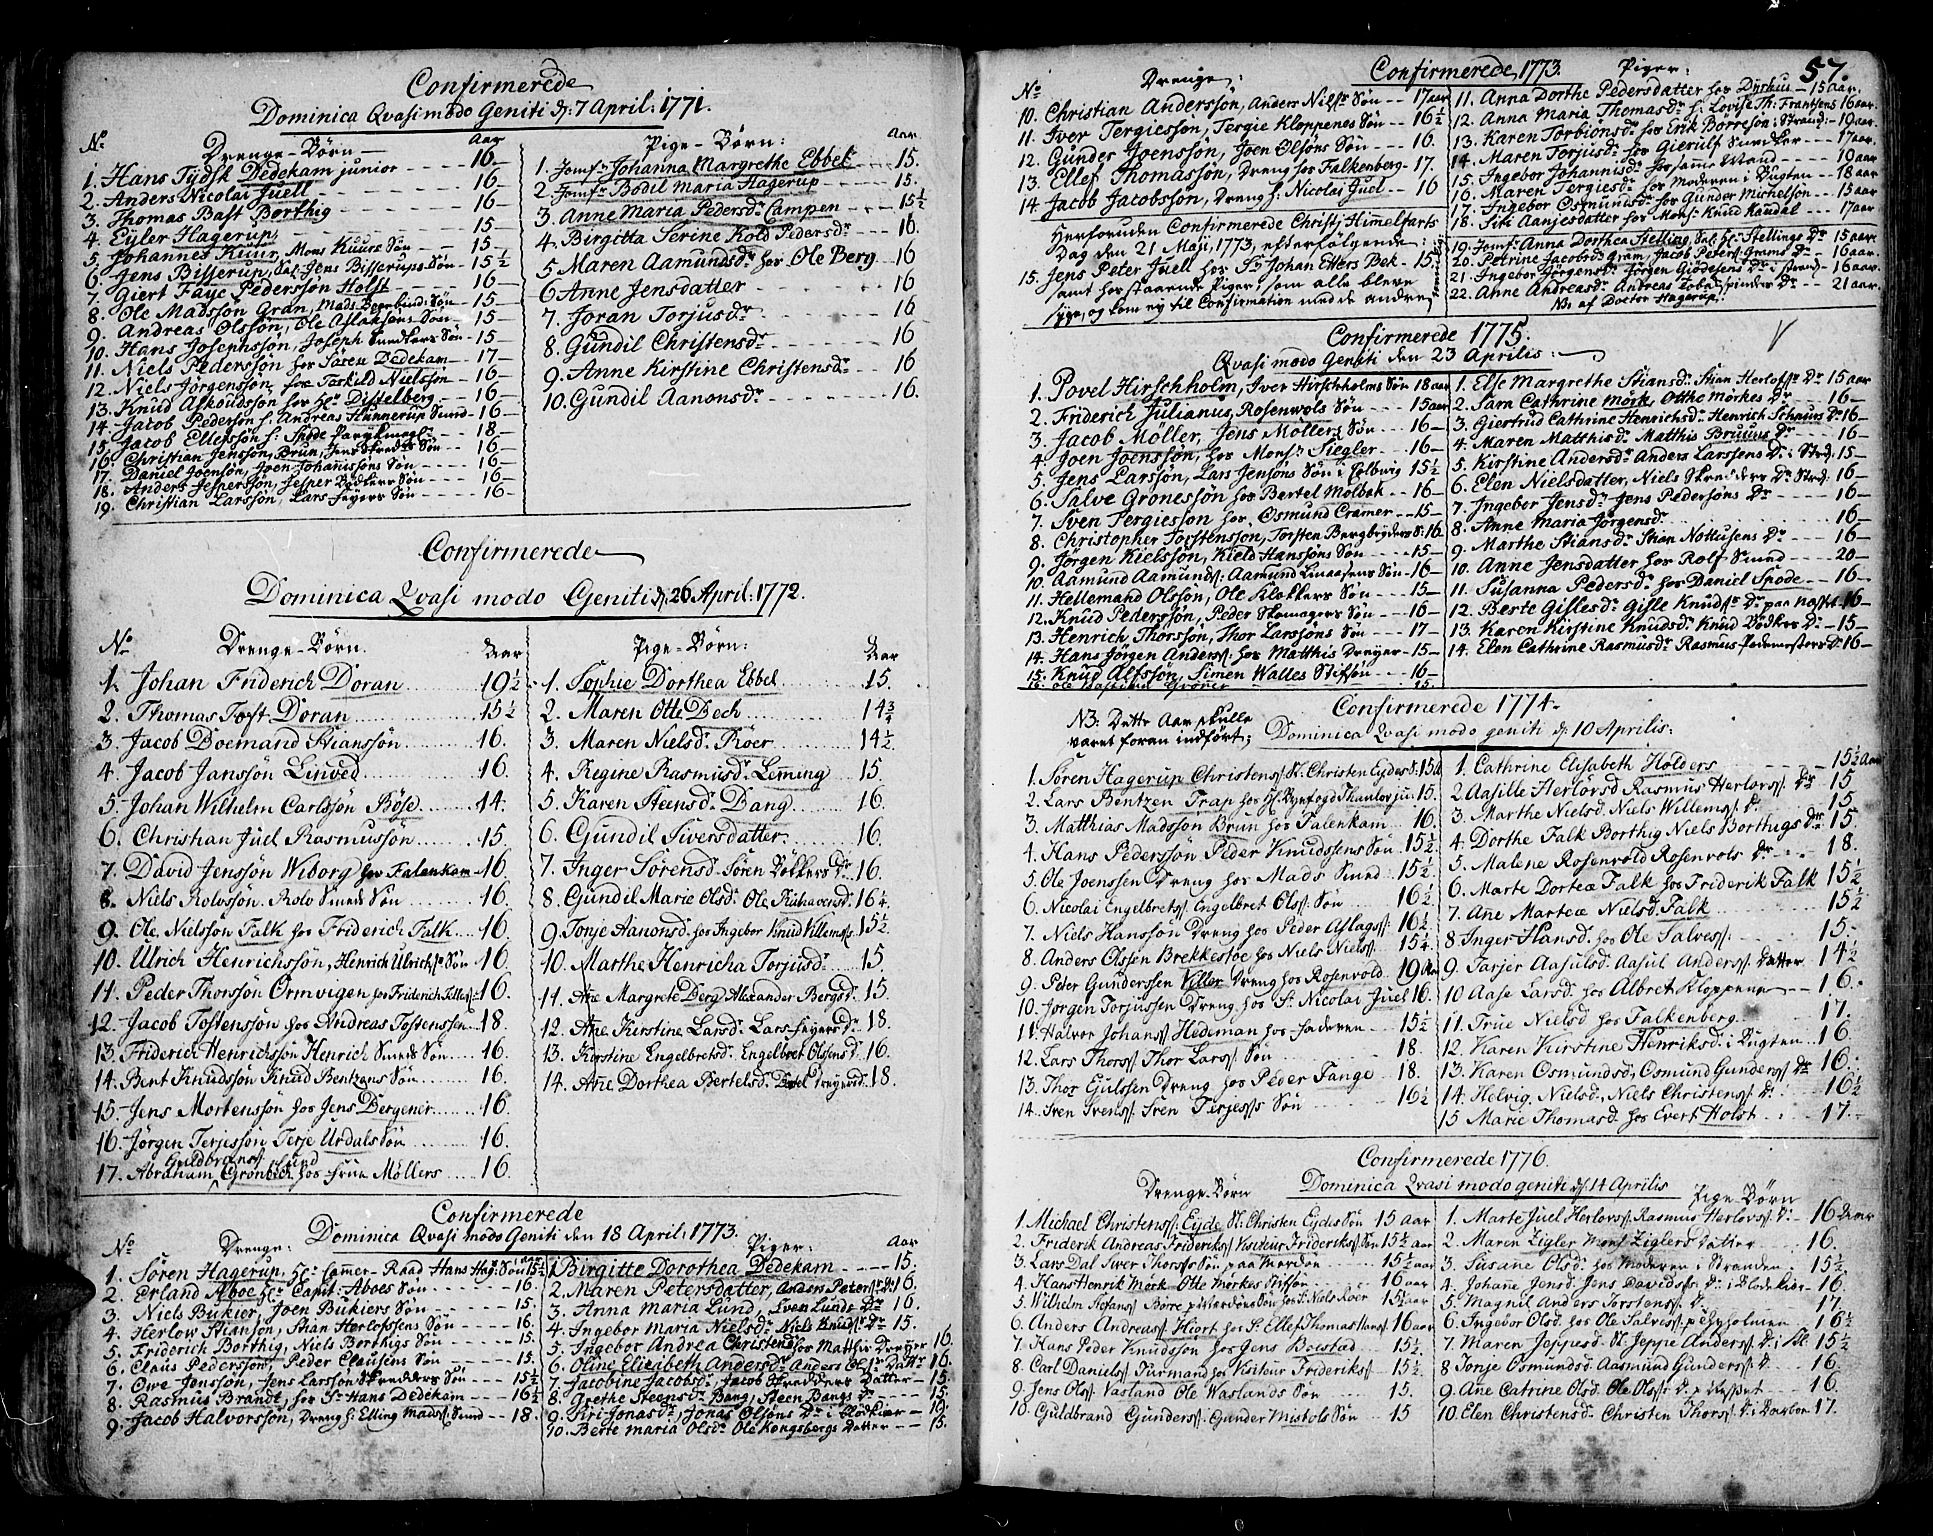 Confirmerede
Dominica Qvasimodo Geniti d: 7 April: 1771.
No Drenge-Börn Aar
1. Hans Tydsk Dedekam junior 16
2. Anders Nicolai Juell 16
3. Thomas Bast Borthig 16
4. Eyler Hagerup 15
5. Johannes Kuur, Mons Kuurs Sön 15
6. Jens Bisserup, Sal: Jens Bisserups Sön 15½
7. Giert Faye Pederssön Holst 16
8. Ole Madssön Gran, Mads Sön 15
9. Andreas Olssön, Ole Aslaksöns Sön 15
10. Hans Josephssön, Joseph Snedkers Sön 15
11. Niels Pederssön hos Sören Dedekam 17
12. Niels Jörgenssön, hos Torkild Nielssön 16
13. Knud Askoudssön hos Hr Distelberg 16
14. Jacob Pederssön h: Andreas Hunnerup Smed 16
15. Jacob Ellefssön h: Spode Parykmager 18
16. Christian Jenssön, Brun, Jens Skredders Sön 16
17. Daniel Joensön, Joen Johannissöns Sön 16
18. Anders Jesperssön, Jesper Bödkers Sön 16
19. Christian Larssön, Lars Feyers Sön 16
Pige-Börn: Aar
1. Jomfr: Johanna Margrethe Ebbel 15.
2. Jomfr: Bodil Maria Hagerup 15.
3. Anne Maria Pedersdr Campen 15½
4. Birgitta Serine Kold Pedersdr 16.
5. Maren Aamundsdr hos Ole Berg 16
6. Anne Jensdatter 16
7. Joran Torjusdr 16
8. Gundil Christensdr 16
9. Anne Kirstine Christensdr 16
10. Gundil Aanonsdr 16.
Confirmerede
Dominica Qvasi modo Geniti d: 26 April: 1772.
No Drenge-Börn. Aar
1. Johan Friderich Doran 19½
2. Thomas Toft Doran 15½
3. Jacob Doemand Stianssön 16.
4. Jacob Janssön Linved 16.
5. Johan Wilhelm Carlssön Böse 14.
6. Christian Juel Rasmussön 15.
7. David Jenssön Wiborg hos Falenkam 16.
8. Niels Rolvssön. Rolv Smeds Sön 16.
9. Ole Nielssön Falk hos Friderich Falk 16.
10. Ulrich Henrichssön, Henrich Ulrichs Sön 16.
11. Peder Thorssön Ormvigen hos Friderich Tellefs: 16.
12. Jacob Tostenssön hos Andreas Tostenssen 18.
13. Friderich Henrichssön Henrich Smeds Sön 16.
14. Bent Knudssön Knud Bentzens Sön 16.
15. Jens Mortenssön hos Jens Bergener 16.
16. Jörgen Terjessön Terje Urdals Sön 16.
17. Abraham Guldbrands: Lund Grönbech hos frue Möllers 16.
Pige-Börn: Aar
1. Sophie Dorthea Ebbel 15.
2. Maren Otte Bech 14¾
3. Maren Nielsdr Röer 14½
4. Regine Rasmusdr Lemming 15.
5. Karen Steensdr Bang 16.
6. Gundil Siversdatter 16.
7. Inger Sörensdr Sören Bökkers Dr 16.
8. Gundil Marie Olsdr Ole 16¼
9. Tonje Aanonsdr hos Ingebor Knud Villems: 15½
10. Marthe Henricha Torjusdr 15
11. Ane Margrete Berg Alexander Bergs d: 15.
12. Ane Kirstine Larsdr Lars Feyers Dr 18.
13. Kirstine Engelbretsdr Engelbret Olsens d: 16.
14. Anne Dorthea Bertelsd: 18.
Confirmerede
Dominica Qvasi modo Geniti den 18 April: 1773.
No Drenge: Aar
1. Sören Hagerup, Hr Cammer-Raad Hans Hag: Sön 15½
2. Erland Aboe Hr Capit: Aboes Sön 16.
3. Niels Bukier, Joen Bukiers Sön 15.
4. Herlow Stianson, Stian Herlofssens Sön 16.
5. Friderich Borthig, Niels Borthigs Sön 15.
6. Claus Pederssön, Peder Clausens Sön 15.
7. Owe Jenssön, Jens Larssön Skredders Sön 15½
8. Rasmus Brandt, hos Sr Hans Dedekam 16½
9. Jacob Halvorssön, Dreng h: Elling Mads: Smed 18.
Piger: Aar
1. Birgitte Dorothea Dedekam 15.
2. Maren Petersdatter, Anders Peters: D: 16.
3. Anna Maria Lund, Sven Lunds Dr 16.
4. Ingebor Maria Nielsdr Niels Knuds: Dr 15.
5. Ingebor Andrea Christensd hos Matthis Dreyer 16
6. Oline Elisabeth Andersdr Anders Ols: Datter 16.
7. Jacobine Jacobsdr, Jacob Skredders Datter 15.
8. Grethe Steensdr Bang, Steen Bangs Dr 15.
9. Siri Jonasdr, Jonas Olsöns Dr i Klokkier 19.
10. Berte Maria Olsdr Ole Kongsbergs Datter 15.
57.
Confirmerede 1773.
No Drenge:
10. Christian Anderssön, Anders Nilsr Sön 17 aar
11. Iver Tergiessön, Tergie Kloppenes Sön 16½
12. Gunder Joenssön, Joen Olsöns Sön 16.
13. Ellef Thomassön, Dreng hos Falkenberg 17.
14. Jacob Jacobssön, Dreng h: Nicolai Juel 16
Herforuden Confirmerede Christi Himmelfarts
Dag den 21 Maji, 1773, efterfölgende:
15. Jens Peter Juell hos Sr Johan Etters Bek 15.
samt hosstaaende Piger, som alle bleve
syge, og kom ey til Confirmation med de andre
Piger:
11. Anna Dorthe Pedersdatter hos Dyrhus 15 aar.
12. Anna Maria Thomasdr h: Lovise Th: Frantsens 16 aar.
13. Karen Torbionsdr hos Erik Börreson i Strand: 19 aar.
14. Maren Torjusdr hos Gierulf Smedker 17 aar.
15. Ingebor Johannisdr hos 19 aar
16. Maren Tergiesdr hos Moderen i Bugten 18 aar
17. Ingebor Osmundsdr hos Gunder Michelsön 15 aar
18. Siri Aanjesdatter hos Mons: Knud Randal 17 aar
19. Jomfr: Anna Dorthea Stelling, Sal: Hr Stellings Dr 15 aar
20. Petrine Jacobsdr Gram, Jacob Peters: Grams Dr 16 aar.
21. Ingebor Jörgensdr Jörgen Giödesens dr i Strand 16 aar
22. Anne Andreasdr Andreas Tobakspinders Dr 21 aar.
NB. af Doctor Hagerup.
Confirmerede 1775.
Qvasi modo Geniti den 23 Aprilis:
1. Povel Hirschholm, Iver Hirschholms Sön 18 aar
2. Friderich Julianus, Rosenvols Sön 15 aar
3. Jacob Möller, Jens Möllers Sön 16
4. Joen Joenssön, hos Monsr Siegler 16
5. Jens Larssön, Lars Jensöns Sön i Colbwig 15½
6. Salve Gronessön hos Bertel Molbak 16
7. Sven Tergiesson hos Osmund Cramer 15
8. Christopher Torstensson, Torsten Bergbryders S: 16
9. Jörgen Kielssön, Kield Hanssöns Sön 15
10. Aamund Aamunds: Aamund Linaasens Sön 16
11. Hellemand Olsson, Ole Klokkers Sön 15
12. Knud Pederssön, Peder Skomagers Sön 16
13. Henrich Thorssön, Thor Larssöns Sön 17
14. Hans Jörgen Anders: hos Matthis Dreyer 15
15. Knud Alfssön, Simen Walles Stifsön 16
16. Ole Groner 15.
1. Else Margrethe Stiansdr Stian Herlofs: Dr 15 aar
2. Sara Cathrine Mörk, Otthe Mörkes Dr 16
3. Giertrud Cathrine Henrichsdr Henrich Schaurs Dr 16
4. Maren Matthisdr Matthis Bruuns Dr 16
5. Kirstine Andersdr Anders Larssens Dr i Strd: 15
6. Elen Nielsdatter, Niels Skredders Dr Strd. 16
7. Ingebor Jensdr Jens Pedersöns Dr 16
8. Anne Maria Jörgensdr 16
9. Marthe Stiansdr Stian Nottusens Dr 16
10. Anne Jensdatter hos Rolf Smed 20
11. Susanna Pedersdr hos Daniel Spode 16
12. Berte Gislesdr Gisle Knuds: Dr paa 16
13. Karen Kirstine Knudsdr Knud Bödkers Dr 15
14. Elen Cathrine Rasmusdr Rasmus Pedemesters Dr 16
NB: Dette Aar skulle
været foran indfört;
Confirmerede 1774.
Dominica Qvasi modo geniti d: 10 Aprilis:
1. Sören Hagerup Christens: Sr Christen Eydes S: 15 A
2. Lars Bentzen Trap hos Hr Byefogd Thaulov ju: 15.
3. Matthias Madsson Brun hos Falenkam 16.
4. Hans Pederssön Peder Knudssens Sön 15½
5. Ole Joenssen Dreng hos Mads Smed 15½
6. Nicolai Engelbrets: Engelbret Ols: Sön 16½
7. Niels Hanssön Dreng hos Peder Aslags: 16½
8. Anders Olssen Brekkestöe hos Niels Niels: 15¼
9. Peter Gunderssen Viller Dreng hos Rosenvold 19 Aar
10. Jörgen Torjussen Dreng hos Sr Nicolai Juel 16.
11. Halvor Johans: Hedeman hos faderen 15½
12. Lars Thors: Thor Lars: Sön 18.
13. Thor Ejulssen Dreng hos Peder Fange 18.
14. Sven Svens: Sven Terjes: Sön 16½
1. Cathrine Elisabeth Holders 15½ Aar
2. Aasille Herlövsd Rasmus Herlovs: Dr 15
3. Marthe Nielsd Niels Willems: D: 15
4. Dorthe Falk Borthig Niels Borthigs Dr 15
5. Malene Rosenvold Rosenvols Dr 18.
6. Marte Dortea Falk hos Friderik Falk 15½
7. Ane Martea Nielsd. Falk 15½
8. Inger Hansd. hos Ole Salves: 15.
9. Tarjer Aasulsd. Aasul Anders: Datter 14½
10. Aase Larsd. hos Albret Kloppene 16.
11. True Nielsd hos Falkenberg 17.
12. Karen Kirstine Henriksd: i Bugten 16
13. Karen Osmundsd, Osmund Gunders: Dr 16.
14. Helvig, Nielsd., Niels Christens: D: 16½
15. Marie Thomasd hos Evert Holst 17.
Confirmerede 1776.
Dominica Qvasi modo geniti d: 14 Aprilis
Drenge-Börn
1. Michael Christens: Eyde Sr Christen Eydes Sön 15 aar
2. Friderik Andreas Frideriks: Visiteur Frideriks: Sön 15½ aar
3. Lars Dal Iver Thors: Sön paa Merdön 15½ aar
4. Hans Henrik Mörk Otte Mörkes Stifsön 16 aar
5. Wilhelm Stefans: Borre hos Sr Niels Roer 15½ aar
6. Anders Andreas: Hiort hos Sr Ellef Thomas: 16 aar
7. Hans Peder Knudssön hos Jens Boestad 15½
8. Carl Daniels: Turmand hos Visiteur Frideriks: 15½
9. Jens Ols: Vasland Ole Waslands Sön 15.
10. Guldbrand Gunders: Gunder Mistols Sön 15
Pige-Börn
1. Marte Juel Herlovs: Rasmus Herlovs: D: 16
2. Maren Zigler Mons: Ziglers Datter 16.
3. Susane Olsd: hos Moderen i Stranden 15½
4. Johane Jensd. Jens Davids: D: i Klodekier 16
5. Magnil Anders Torstens: D: 17
6. Ingebor Olsd: hos Ole Salves: 16½
7. Maren Jeppesd. Sr Jeppe Anders: D: 15½
8. Tonje Osmundsd. Aasmund Gunders: D: 16.
9. Ane Catrine Olsd: Ole Ols: D: 16.
10. Elen Christensd. Christen Thors: D: i Barbor 17.